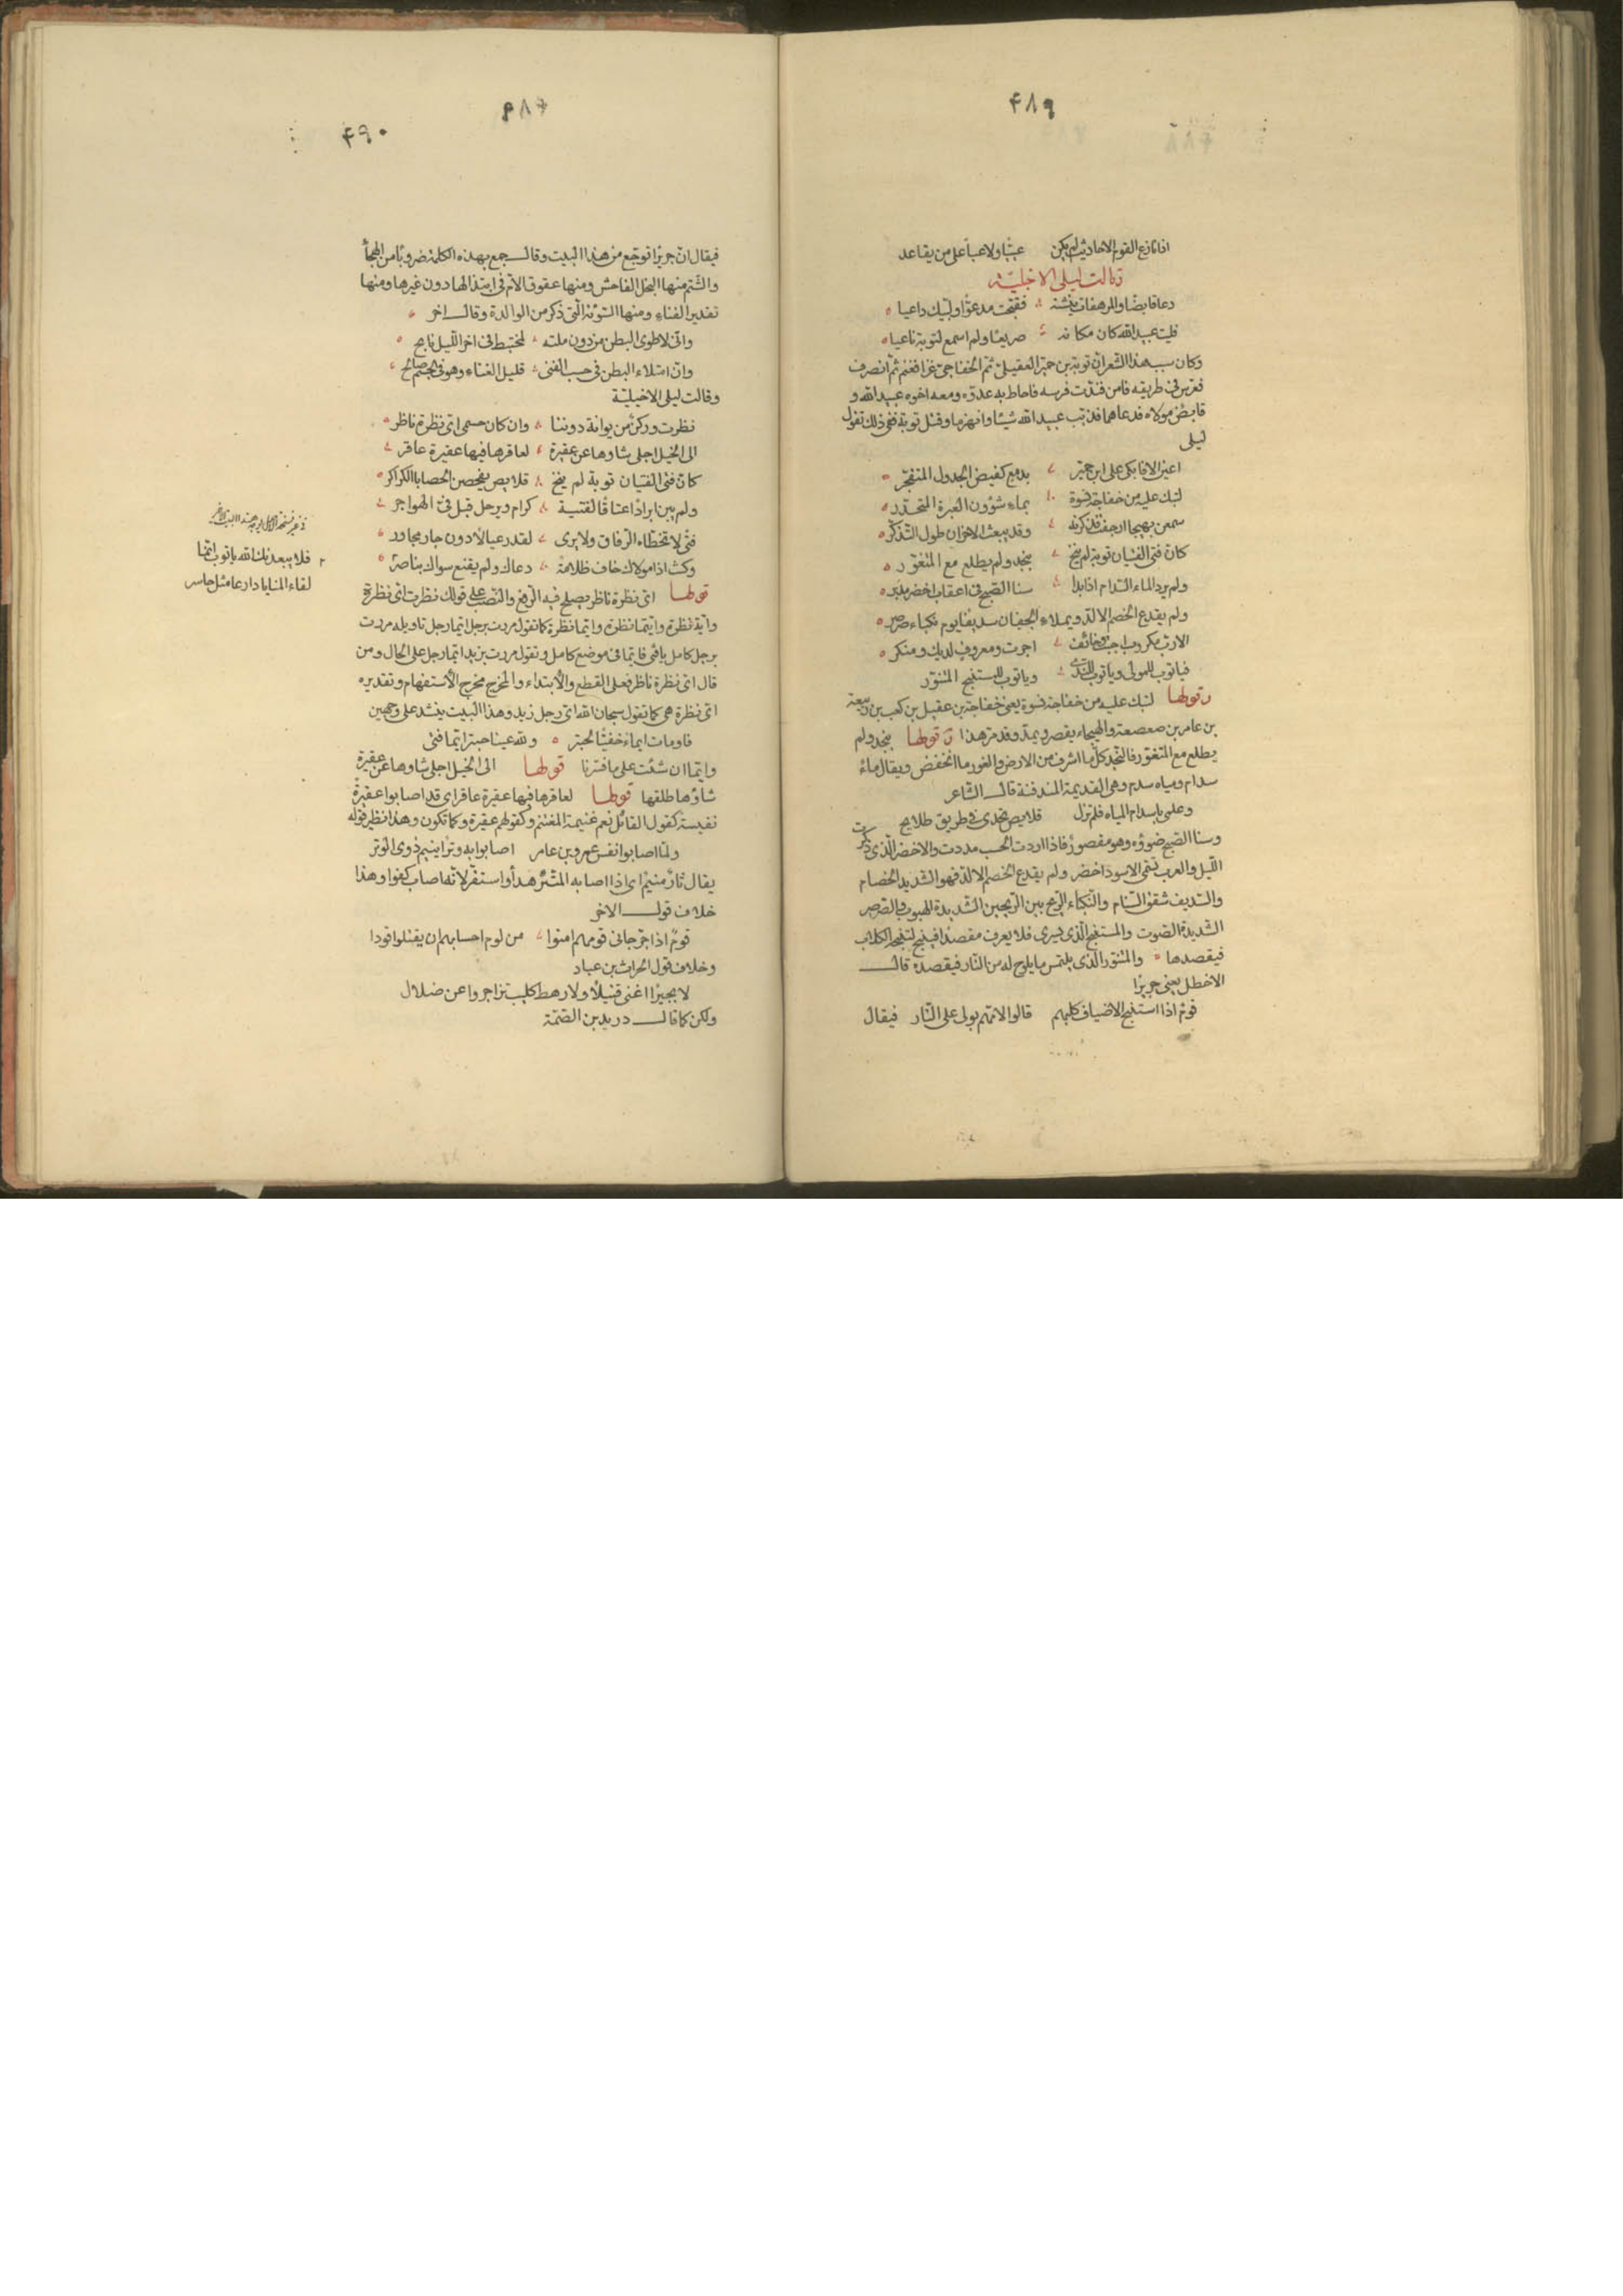 ۴۸۹
اذا نازع القوم الاحاديث لم يكن عييا ولا عبأ على من يقاعد
وقالت ليلى الاخيليّة
دعا قابضا والمرهفات ينشنه فقبّحت مدعوّا ولبّيك داعيا
فليت عبيد الله كان مكانه صريعا ولم اسمع لتوبة ناعيا
وكان سبب هذا الشعر ان توبة بن حميّر العقيلىّ ثمّ الخفاجىّ غزا فغنم ثمّ انصرف
فعرّس فى طريقه فامن فندّت فرسه فاحاط به عدوّه ومعه اخوه عبيد الله و
قابض مولاه فدعاهما فذبّب عبيد الله شيئا وانهزما وقتل توبة ففى ذلك تقول
ليلى
اعينىّ الا فابكى على ابن حميّر بدمع كفيض الجدول المتفجّر
لتبك عليه من خفاجة نسوة بماء شؤون العبرة المتحدّر
سمعن بهيجا ارجفت فذكرنه وقد يبعث الاحزان طول التذكّر
كانّ فتى الفتيان توبة لم ينخ بنجد ولم يطلع مع المتغوّر
ولم يرد الماء السّدام اذا بدا سنا الصّبح فى اعقاب اخضر مدبر
ولم يقدع الخصم الالدّ ويملاء الجفان سديفا يوم نكباء صرصر
الا ربّ مكروب اجبت وخائف اجرت ومعروف لديك ومنكر
فيا توب للمولى ويا توب للنّدى ويا توب للمستنبح المتنوّر
وقولها لتبك عليه من خفاجة نسوة يعنى خفاجة بن عقيل بن كعب بن ربيعة
بن عامر بن صعصعة والهيجاء يقصر ويمدّ وقد مرّ هذا وقولها بنجد ولم
يطلع مع المتغوّر فالنّجد كلّ ما اشرف من الارض والغور ما انخفض ويقال ماءٌ
سدام ومياه سدم وهى القديمة المندفنة قال الشّاعر
وعلمى باسدام المياه فلم تزل قلايص تحدى فى طريق طلايح
وسنا الصّبح ضوؤه وهو مقصورٌ فاذا اردت الحسب مددت والاخضر الّذى ذكرت
اللّيل والعرب تسمّى الاسود اخضر ولم يقدع الخصم الالدّ فهو الشديد الخصام
والسّديف شقق السّنام والنّكباء الرّيح بين الرّيحين الشّديدة الهبوب والصّرصر
الشّديدة الصّوت والمستنبح الّذى يسرى فلا يعرف مقصدًا فينبح لتنبحه الكلاب
فيقصدها والمتنوّر الّذى يلتمس ما يلوح له من النّار فيقصده قال
الاخطل يعنى جريرًا
قومٌ اذا استنبح الاضياف كلبهم قالوا لامّهم بولى على النّار فيقال
۴۹۰
فيقال ان جريرًا توجّع من هذا البيت وقال جمع بهذه الكلمة ضروبًا من الهجأ
والشّتم منها البخل الفاحش ومنها عقوق الامّ فى ابتذالها دون غيرها ومنها
تقدير الفناء ومنها السّوءة الّتى ذكر من الوالدة وقال اخر
وانّى لاطوى البطن من دون ملئه لمختبط فى اخر اللّيل نابح
وانّ امتلاء البطن فى حسب الفتى قليل الغناء وهو فى الجسم صالح
وقالت ليلى الاخيليّة
نظرت وركنٌ من بوانة دوننا وان كان حسمى اىّ نظرة ناظر
الى الخيل اجلى شاوها عن عقيرة لعاقرها فيها عقيرة عاقر
كانّ فتى الفتيان توبة لم ينخ قلايص يفحصن الحصا بالكراكر
ولم يبن ابرادًا عتاقًا لفتية كرام ويرحل قبل فىّ الهواجر
فتًى لا تخطّاه الرّفاق ولا يرى لقدر عيالًا دون جار مجاور
وكنت اذا مولاك خاف ظلامة دعاك ولم يقنع سواك بناصر
فلا يبعدنك الله يا توب انّما
لقاء المنايا دارعا مثل حاسر
قولها اىّ نظرة ناظر يصلح فيه الرّفع والنّصب على قولك نظرت اىّ نظرة
وايّة نظرة وايّتما نظرة وايّما نظرة كما تقول مررت برجل ايّما رجل تاويله مررت
برجل كامل فايّما فى موضع كامل وتقول مررت بزيد ايّما رجل على الحال ومن
قال اىّ نظرة ناظر فعلى القطع والابتداء والمخرج مخرج الاستفهام وتقديره
اىّ نظرة هى كما تقول سبحان الله اىّ رجل زيد وهذا البيت ينشد على وجهين
فاومات ايماءً خفيًّا لحبتر ولله عينا حبتر ايّما فتى
وايّما ان شئت على ما فسّرنا قولها الى الخيل اجلى شاوها عن عقيرة
شاؤها طلقها قولها لعاقرها فيها عقيرة عاقر اى قد اصابوا عقيرةً
نفيسة كقول القائل نعم غنيمة المغتنم وكقولهم عقيرة وكما تكون وهذا نظير قوله
ولمّا اصابوا نفس عمرو بن عامر اصابوا به وترًا ينيم ذوى الوتر
يقال ثارٌ منيم اى اذا اصابه المثّئر هدأ واستقرّ لانّه اصاب كفوا وهذا
خلاف قول الاخر
قومٌ اذا جرّ جانى قومهم امنوا من لوم احسابهم ان يقتلوا قودا
وخلاف قول الحراث بن عباد
لا بجيرًا اغنى قتيلًا ولا رهط كليب تزاجروا عن ضلال
ولكن كما قال دريد بن الصّمّة